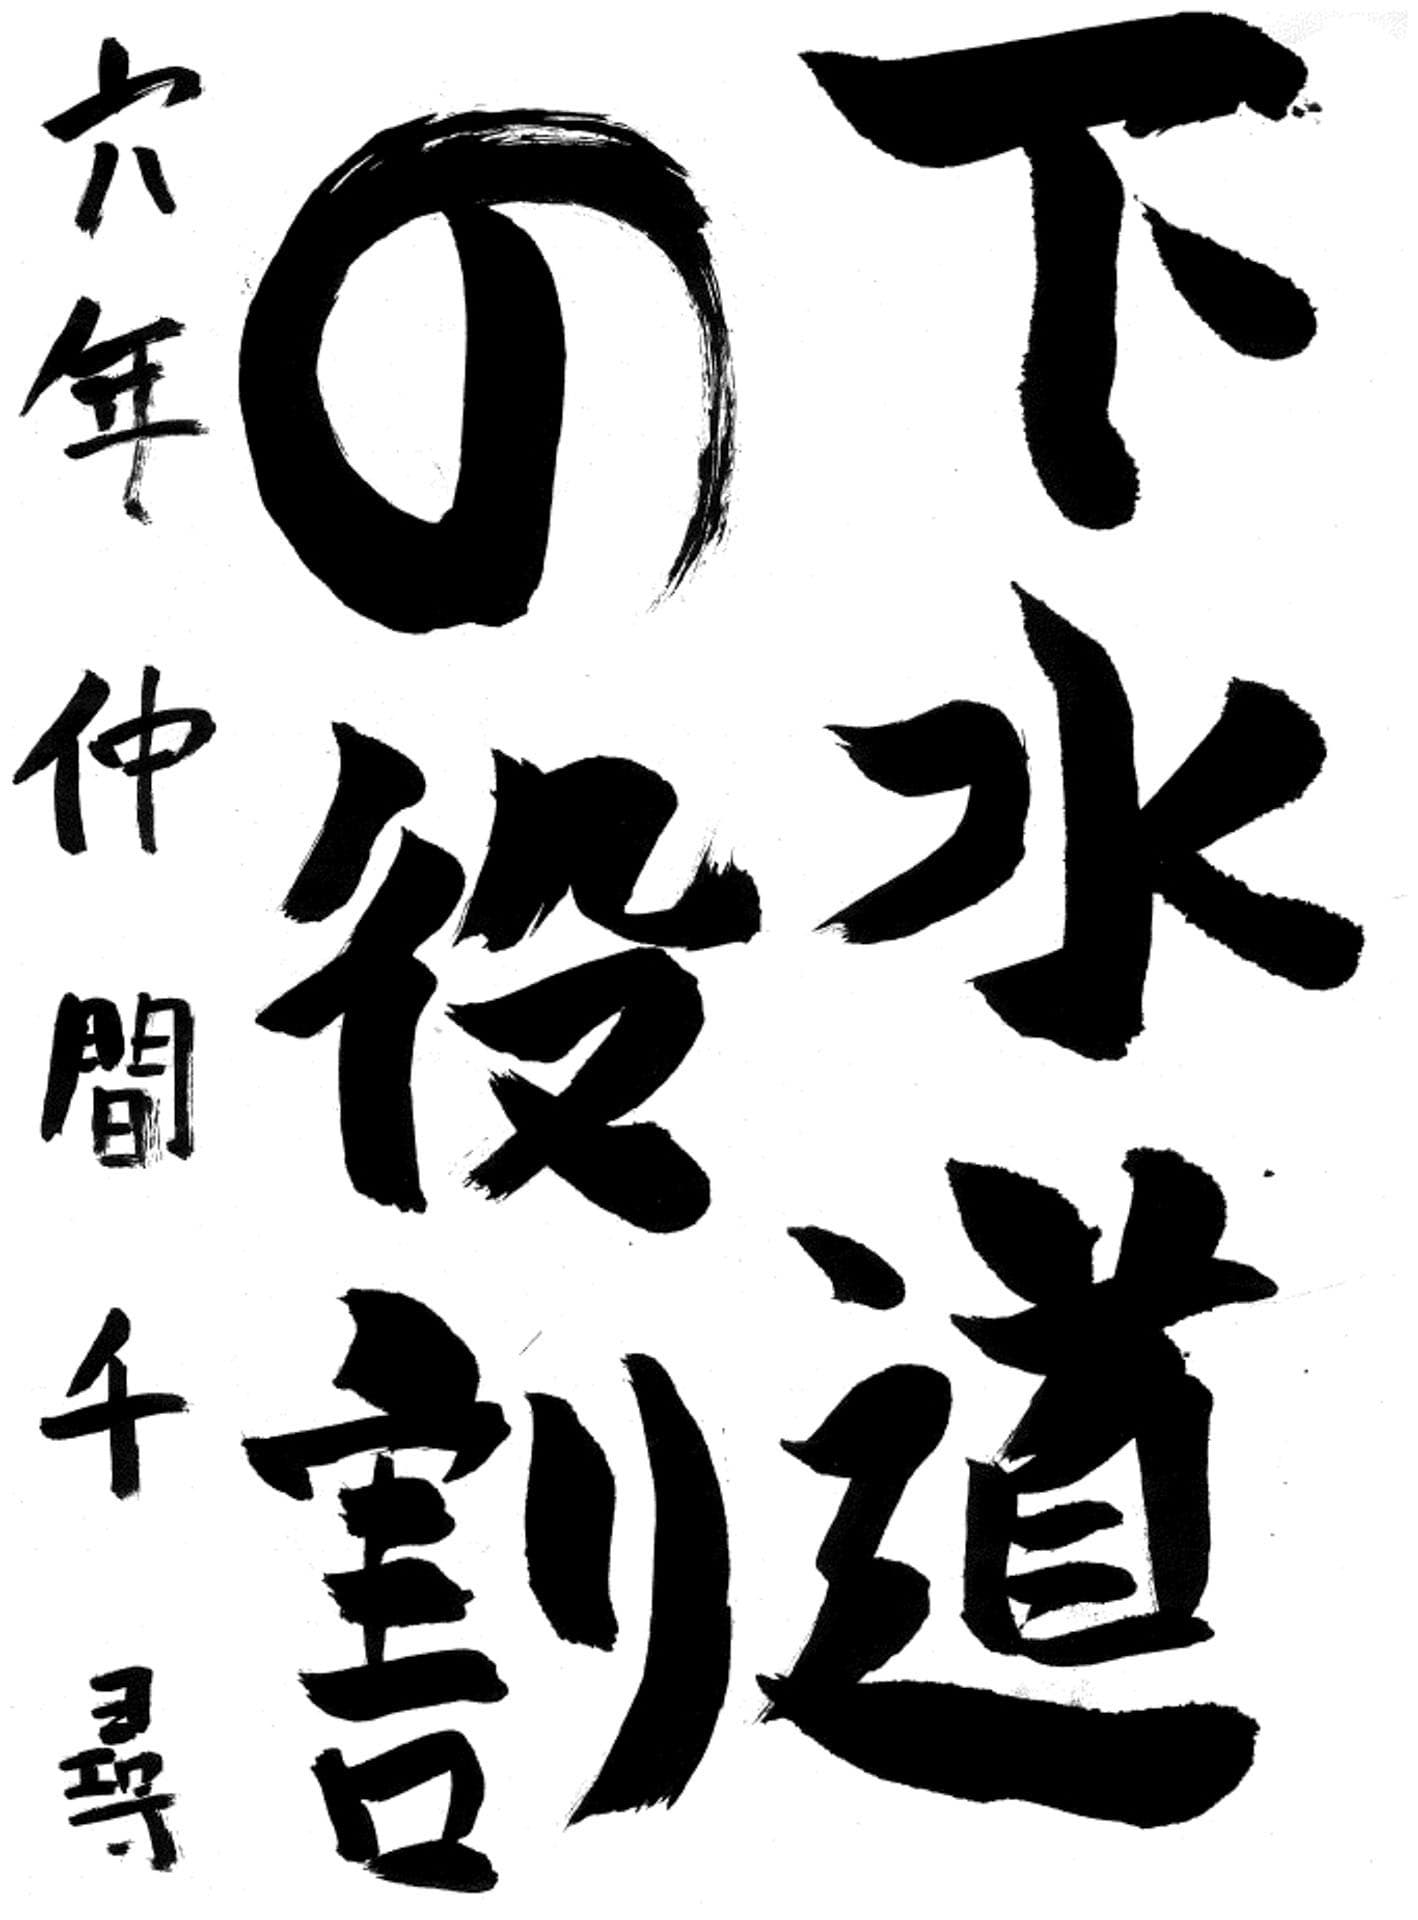 下水道
の役割
六年 仲間千尋